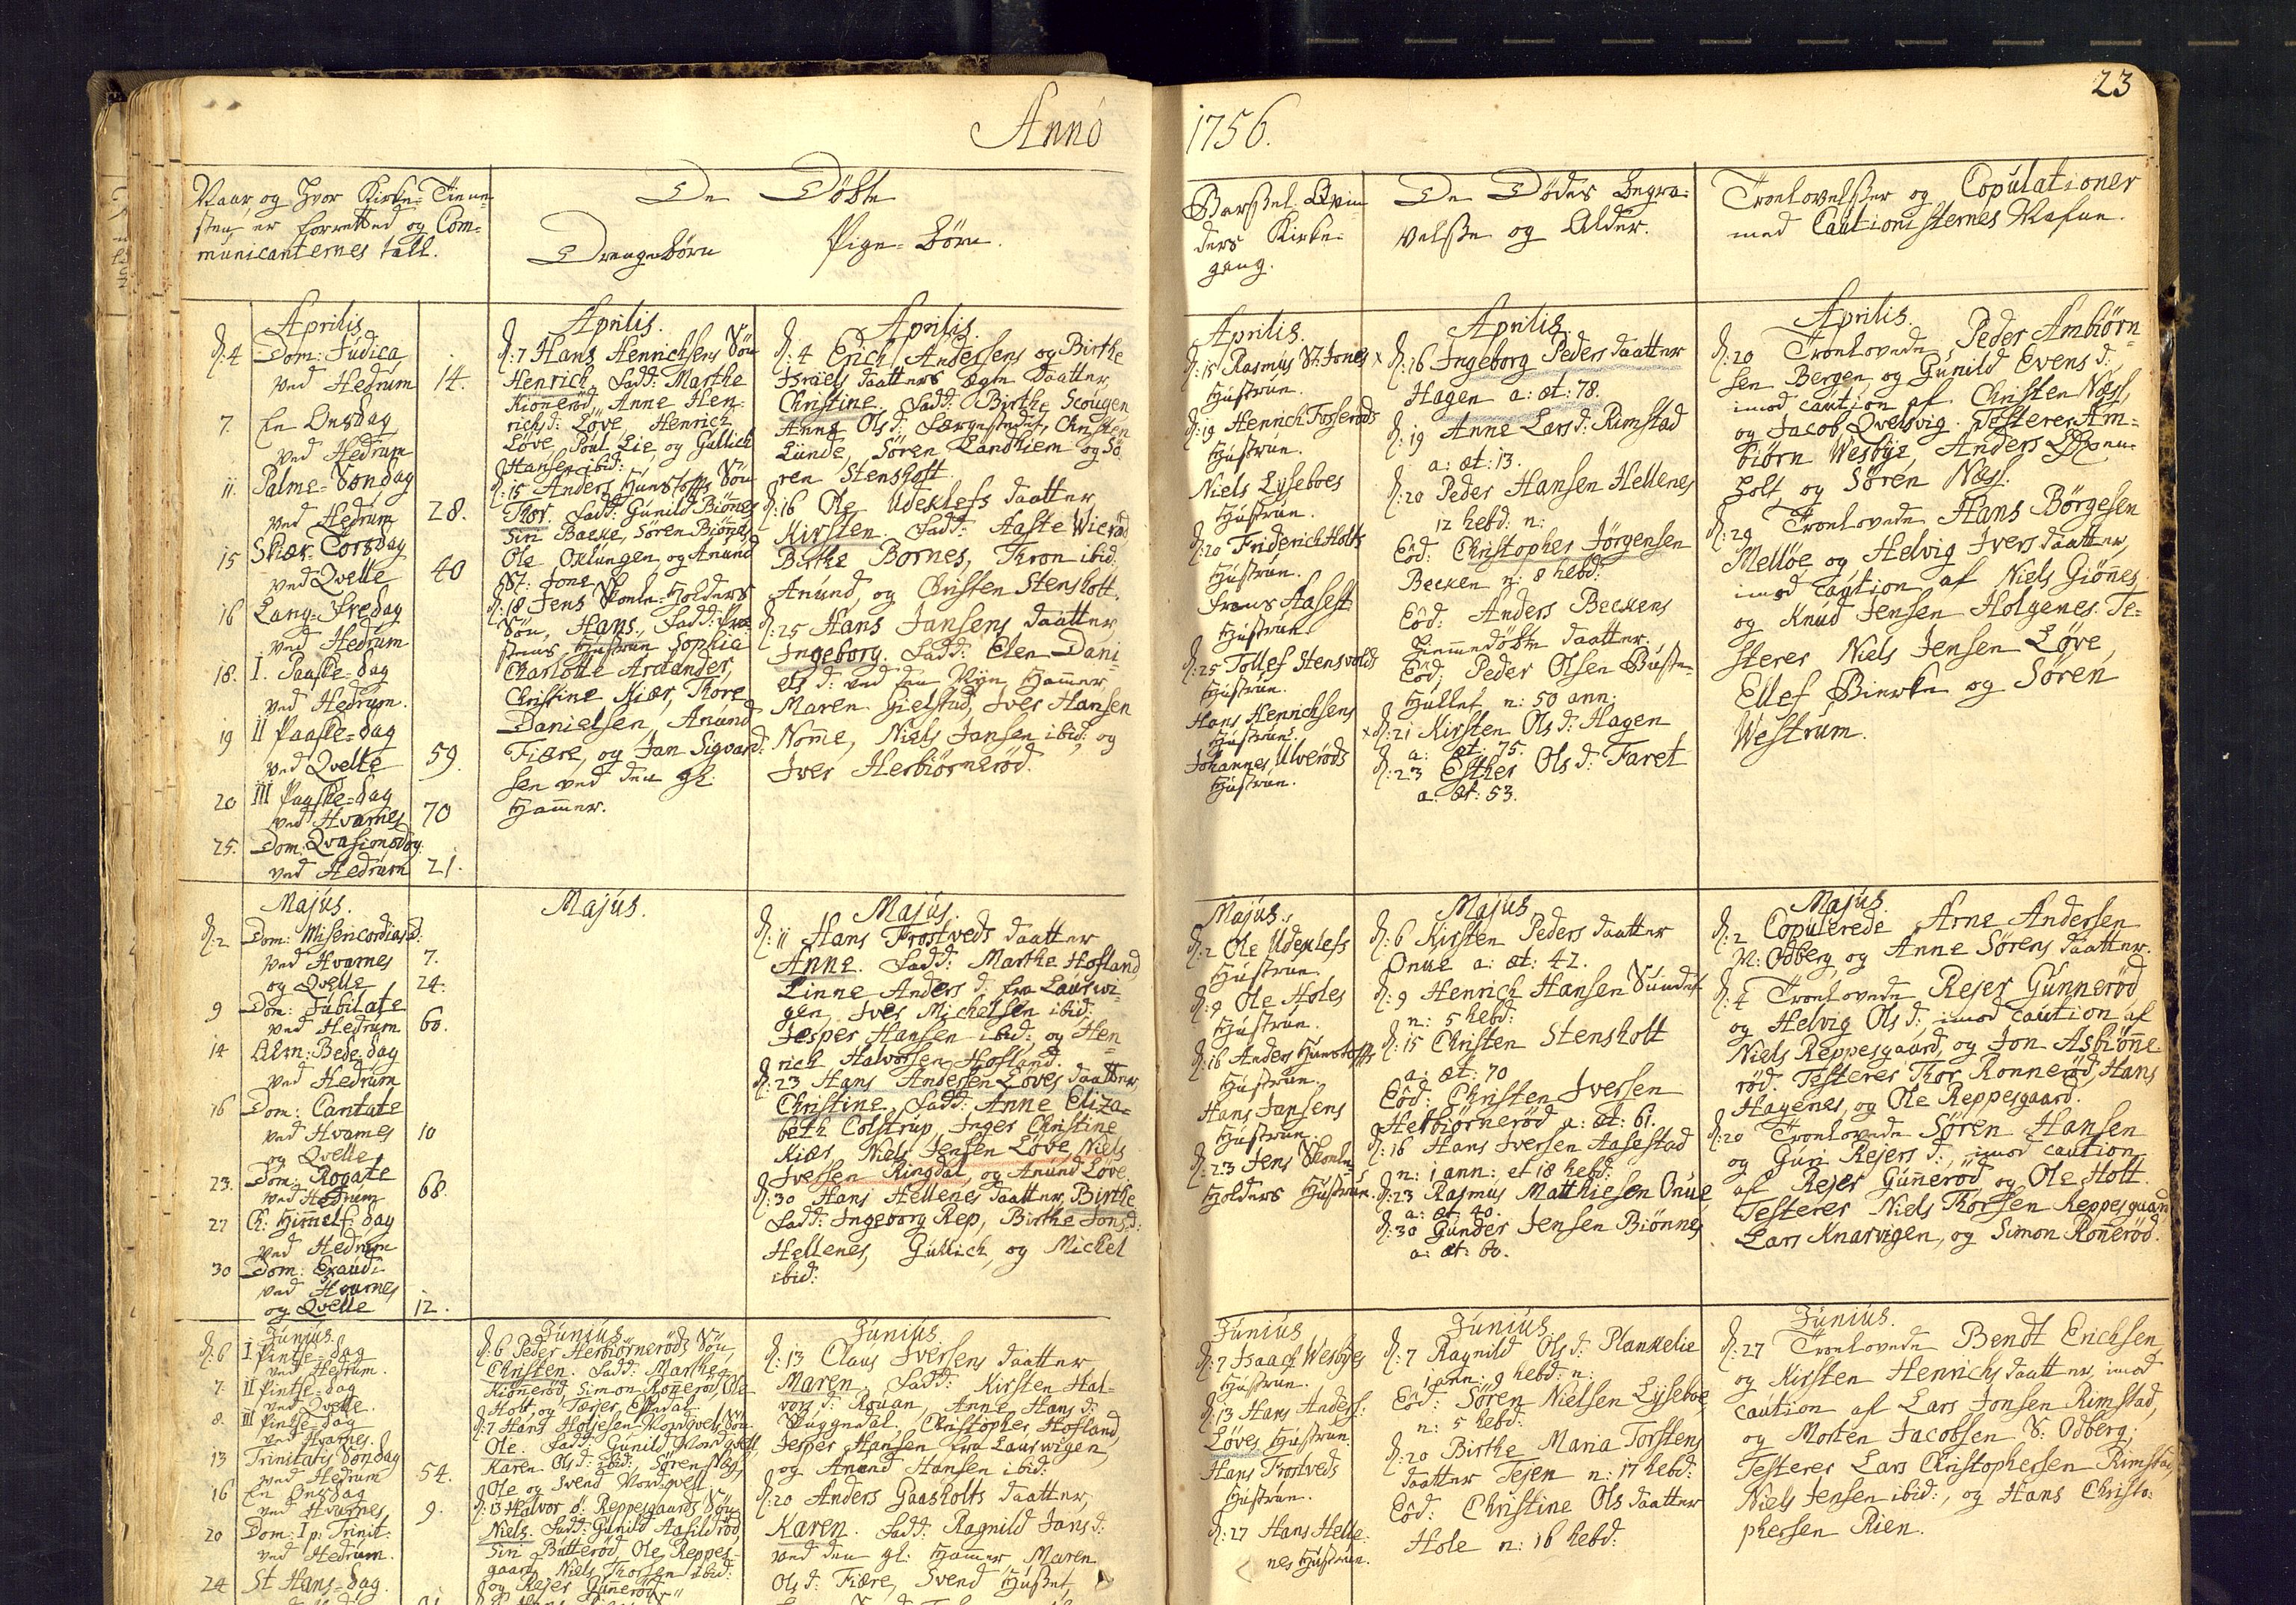 Anno
Naar og Hvor Kirke-Tiene-
sten er forretted og Com-
municanternes tall.
De Döbte
Drengebörn
Pige-Börn.
Aprilis
d: 4 Dom: Judica
ved Hedrum 14.
7. En Onsdag
ved Hedrum
11. Palme-Söndag
ved Hedrum 28.
15 Skiær-Torsdag
ved Qvelle 40
16 Lang-fredag
ved Hedrum
18. I. Paaske-dag
ved Hedrum.
19 II Paaske-dag
ved Qvelle 59.
20 III Paaske-dag
ved Hvarnes 70
25. Dom: Qvasimodog.
ved Hedrum 21.
Aprilis.
d: 7 Hans Henrichsens Sön
Henrich. Fadd: Marthe
Kioneröd, Anne Hen-
richsd: Löve, Henrich
Löve, Poul Lie, og Gullich
Hansen ibid:
d: 15 Anders Hunstoffs Sön
Thor. Fadd: Gunild Biönnes
Siri Bache, Sören Biönnes,
Ole Oklungen, og Anund
St: Jone
d: 18 Jens Skole-Holders
Sön, Hans. Fadd: Præ-
stens Hustrue Sophia
Charlotte Arctander,
Christine Kiær, Thore
Danielsen, Anund
Fiære, og Jan Sigvard-
sen ved den gl:
Hammer.
Aprilis.
d: 4 Erich Andersens og Birthe
Israels daatters ægte daatter,
Christine. Fadd: Birthe Scougen
Anne Ols d: Færgestedet, Christen
Lunde, Sören Landhiem og Sö-
ren Stensholt.
d: 16 Ole Udeklefs daatter
Kirsten. Fadd: Aaste Wieröd
Birthe Bornes, Thron ibid:
Anund, og Christen Stensholt.
d: 25 Hans Jansens daatter
Ingeborg. Fadd: Elen Dani-
els d: ved den Nye Hammer,
Maren Gielstad, Iver Hansen
Nomme, Niels Jansen ibid: og
Iver Herbiörneröd.
Majus.
d: 2 Dom: Misericordias D.
ved Hvarnes 7.
og Qvelle 24.
9 Dom: Jubilate
ved Hedrum 60.
14 Alm: Bede-dag
ved Hedrum
16 Dom: Cantate
ved Hvarnes 10
og Qvelle
23. Dom: Rogate
ved Hedrum 68.
27 Ch: Himmelf: dag
ved Hedrum
30 Dom: Exaudi
ved Hvarnes
og Qvelle 12.
Majus.
Majus.
d: 11 Hans Trostveds daatter
Anne. Fadd: Marthe Hofland
Linne Anders d: fra Laurwi-
gen, Iver Michelsen ibid:
Jesper Hansen ibid: og Hen-
rich Halvorsen Hofland.
d: 23 Hans Andersen Löves daatter,
Christine. Fadd: Anne Eliza-
beth Colstrup, Inger Christine
Kiær, Niels Jensen Löve, Niels
Iversen Ringdal, og Anund Löve.
d: 30 Hans Hellenes daatter, Birthe
Fadd: Ingeborg Rep, Birthe Jons d:
Hellenes, Gullich, og Michel
ibid:
Junius.
d: 6 I Pintse-dag
ved Hedrum.
7. II Pintse-dag
ved Qvelle.
8. III Pintse-dag
ved Hvarnes.
13 Trinitatis Söndag
ved Hedrum 54.
16 En Onsdag
ved Hvarnes 9.
20 Dom: I p: Trinit:
ved Hedrum.
24 St Hans-dag.
Junius
d: 6 Peder Herbiörneröds Sön,
Christen. Fadd: Marthe
Kioneröd, Simon Ronneröd, Ole
Holt og Tarjer Eftedal.
d: 7 Hans Holjesen Nordqvels Sön
Ole. Fadd: Gunild Nordqvell,
Karen Ols d: ibid:, Sören Næs,
Ole og Svend Nordqvell
d: 13 Halvor Ø: Reppesgaards Sön
Niels. Fadd: Gunild Aasildröd,
Siri Butteröd, Ole Reppes-
gaard, Niels Thorsen ibid:
og Rejer Gunneröd
Junius
d: 13 Claus Iversens daatter
Maren. Fadd: Kirsten Hal-
vors d: Rouan, Anne Hans d:
Skuggedal, Christopher Hofland,
Jesper Hansen fra Laurwigen,
og Anund Hansen ibid:
d: 20 Anders Gaasholts daatter,
Karen. Fadd: Ragnild Jans d:
ved den gl: Hammer, Maren
Ols d: Fiære, Svend Huset,
23
1756.
Barsel-Qvin-
ders Kirke-
gang.
De Dödes Begra-
velse og Alder.
Troelovelser og Copulationer
med Cautionisternes Nafne.
Aprilis.
d: 15 Rasmus St: Jones
Hustrue.
d: 19 Henrich Fosseröds
Hustrue.
Niels Lyseboes
Hustrue.
d: 20 Friderich Holts
Hustrue.
Frans Aasest
Hustrue.
d: 25 Tollef Stensvolds
Hustrue.
Hans Henrichsens
Hustrue.
Johannes Ulveröds
Hustrue.
Aprilis
x d: 16 Ingeborg Pedersdaatter
Hagen a: æt: 78.
d: 19 Anne Lars d: Rimstad
a: æt: 13.
d: 20 Peder Hansen Hellenes
12 hebd: n:
Eod: Christopher Jörgensen
Becken n: 8 hebd:
Eod: Anders Beckens
hiemmedöbte daatter.
Eod: Peder Olsen Buste-
Hullet n: 50 ann:
x d: 21 Kirsten Ols d: Hagen
a: æt: 75.
d: 23 Esther Ols d: Faret
a: æt: 53.
Aprilis
d: 20 Troelovede Peder Ambiörn-
sen Bergen, og Gunild Evens d:
imod caution af Christen Næss,
og Jacob Qvelsvig. Testerer Am-
biörn Wesbye, Anders
holt, og Sören Næss.
d: 29 Troelovede Hans Börgesen
Mellöe og Helvig Iversdaatter,
imod caution af Niels Giönnes
og Knud Jensen Holgenes. Te-
sterer Niels Jensen Löve,
Ellef Bierke og Sören
Westrum.
Majus.
d: 2 Ole Udeklefs
Hustrue.
d: 9 Ole Holes
Hustrue.
d: 16 Anders Hunstoffs
Hustrue.
Hans Jansens
Hustrue.
d: 23 Jens Skole-
Holders Hustrue.
Majus
d: 6 Kirsten Peders daatter
Onue a: æt: 42.
d: 9 Henrich Hansen Sundet
n: 5 hebd:
d: 15 Christen Stensholt
a: æt: 70
Eod: Christen Iversen
Herbiörneröd a: æt: 61.
d: 16 Hans Iversen Aasestad
n: 1 ann: et 18 hebd:
d: 23 Rasmus Matthiesen Onue
a: æt: 40.
d: 30 Gunder Jensen Biönnes
a: æt: 60.
Majus.
d: 2 Copulerede Arne Andersen
N: Odberg og Anne Sörens daatter.
d: 4 Troelovede Rejer Gunneröd
og Helvig Ols d:, imod caution af
Niels Reppesgaard, og Jon Asbiönne-
röd. Testerer Thor Ronneröd, Hans
Hagenes, og Ole Reppesgaard.
d: 20 Troelovede Sören Hansen
og Guri Rejers d:, imod caution
af Rejer Gunneröd og Ole Holt.
Testerer Niels Thorsen Reppesgaard
Lars Knarvigen, og Simon Ronneröd.
Junius
d: 7 Isaach Wesbyes
Hustrue.
d: 13 Hans Anders:
Löves Hustrue.
Hans Trostveds
Hustrue.
d: 27 Hans Helle-
nes Hustrue.
Junius
d: 7 Ragnild Ols d: Plankelie
1 ann: 9 hebd: n:
Eod: Sören Nielsen Lyseboe,
n: 5 hebd:
d: 20 Birthe Maria Torstens
daatter Tejen n: 17 hebd:
Eod: Christine Olsdaatter
Hole n: 16 hebd:
Junius.
d: 27 Troelovede Bendt Erichsen,
og Kirsten Henrichs daatter, imod
caution af Lars Jonsen Rimstad,
og Morten Jacobsen S: Odberg;
Testerer Lars Christophersen Rimstad,
Niels Jensen ibid:, og Hans Christo-
phersen Rien.